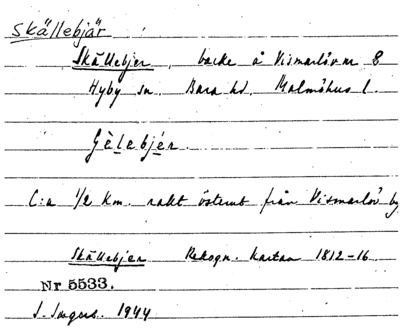 Skällebjär
Skällebjer, backe å Vismarlöv nr 8
Hyby sn. Bara hd. Malmöhus l.
Gèlebjér.
C:a 1/2 km. rakt österut från Vismarlöv by
Skällebjer Rekogn. kartan 1812-16
Nr 5533.
1944